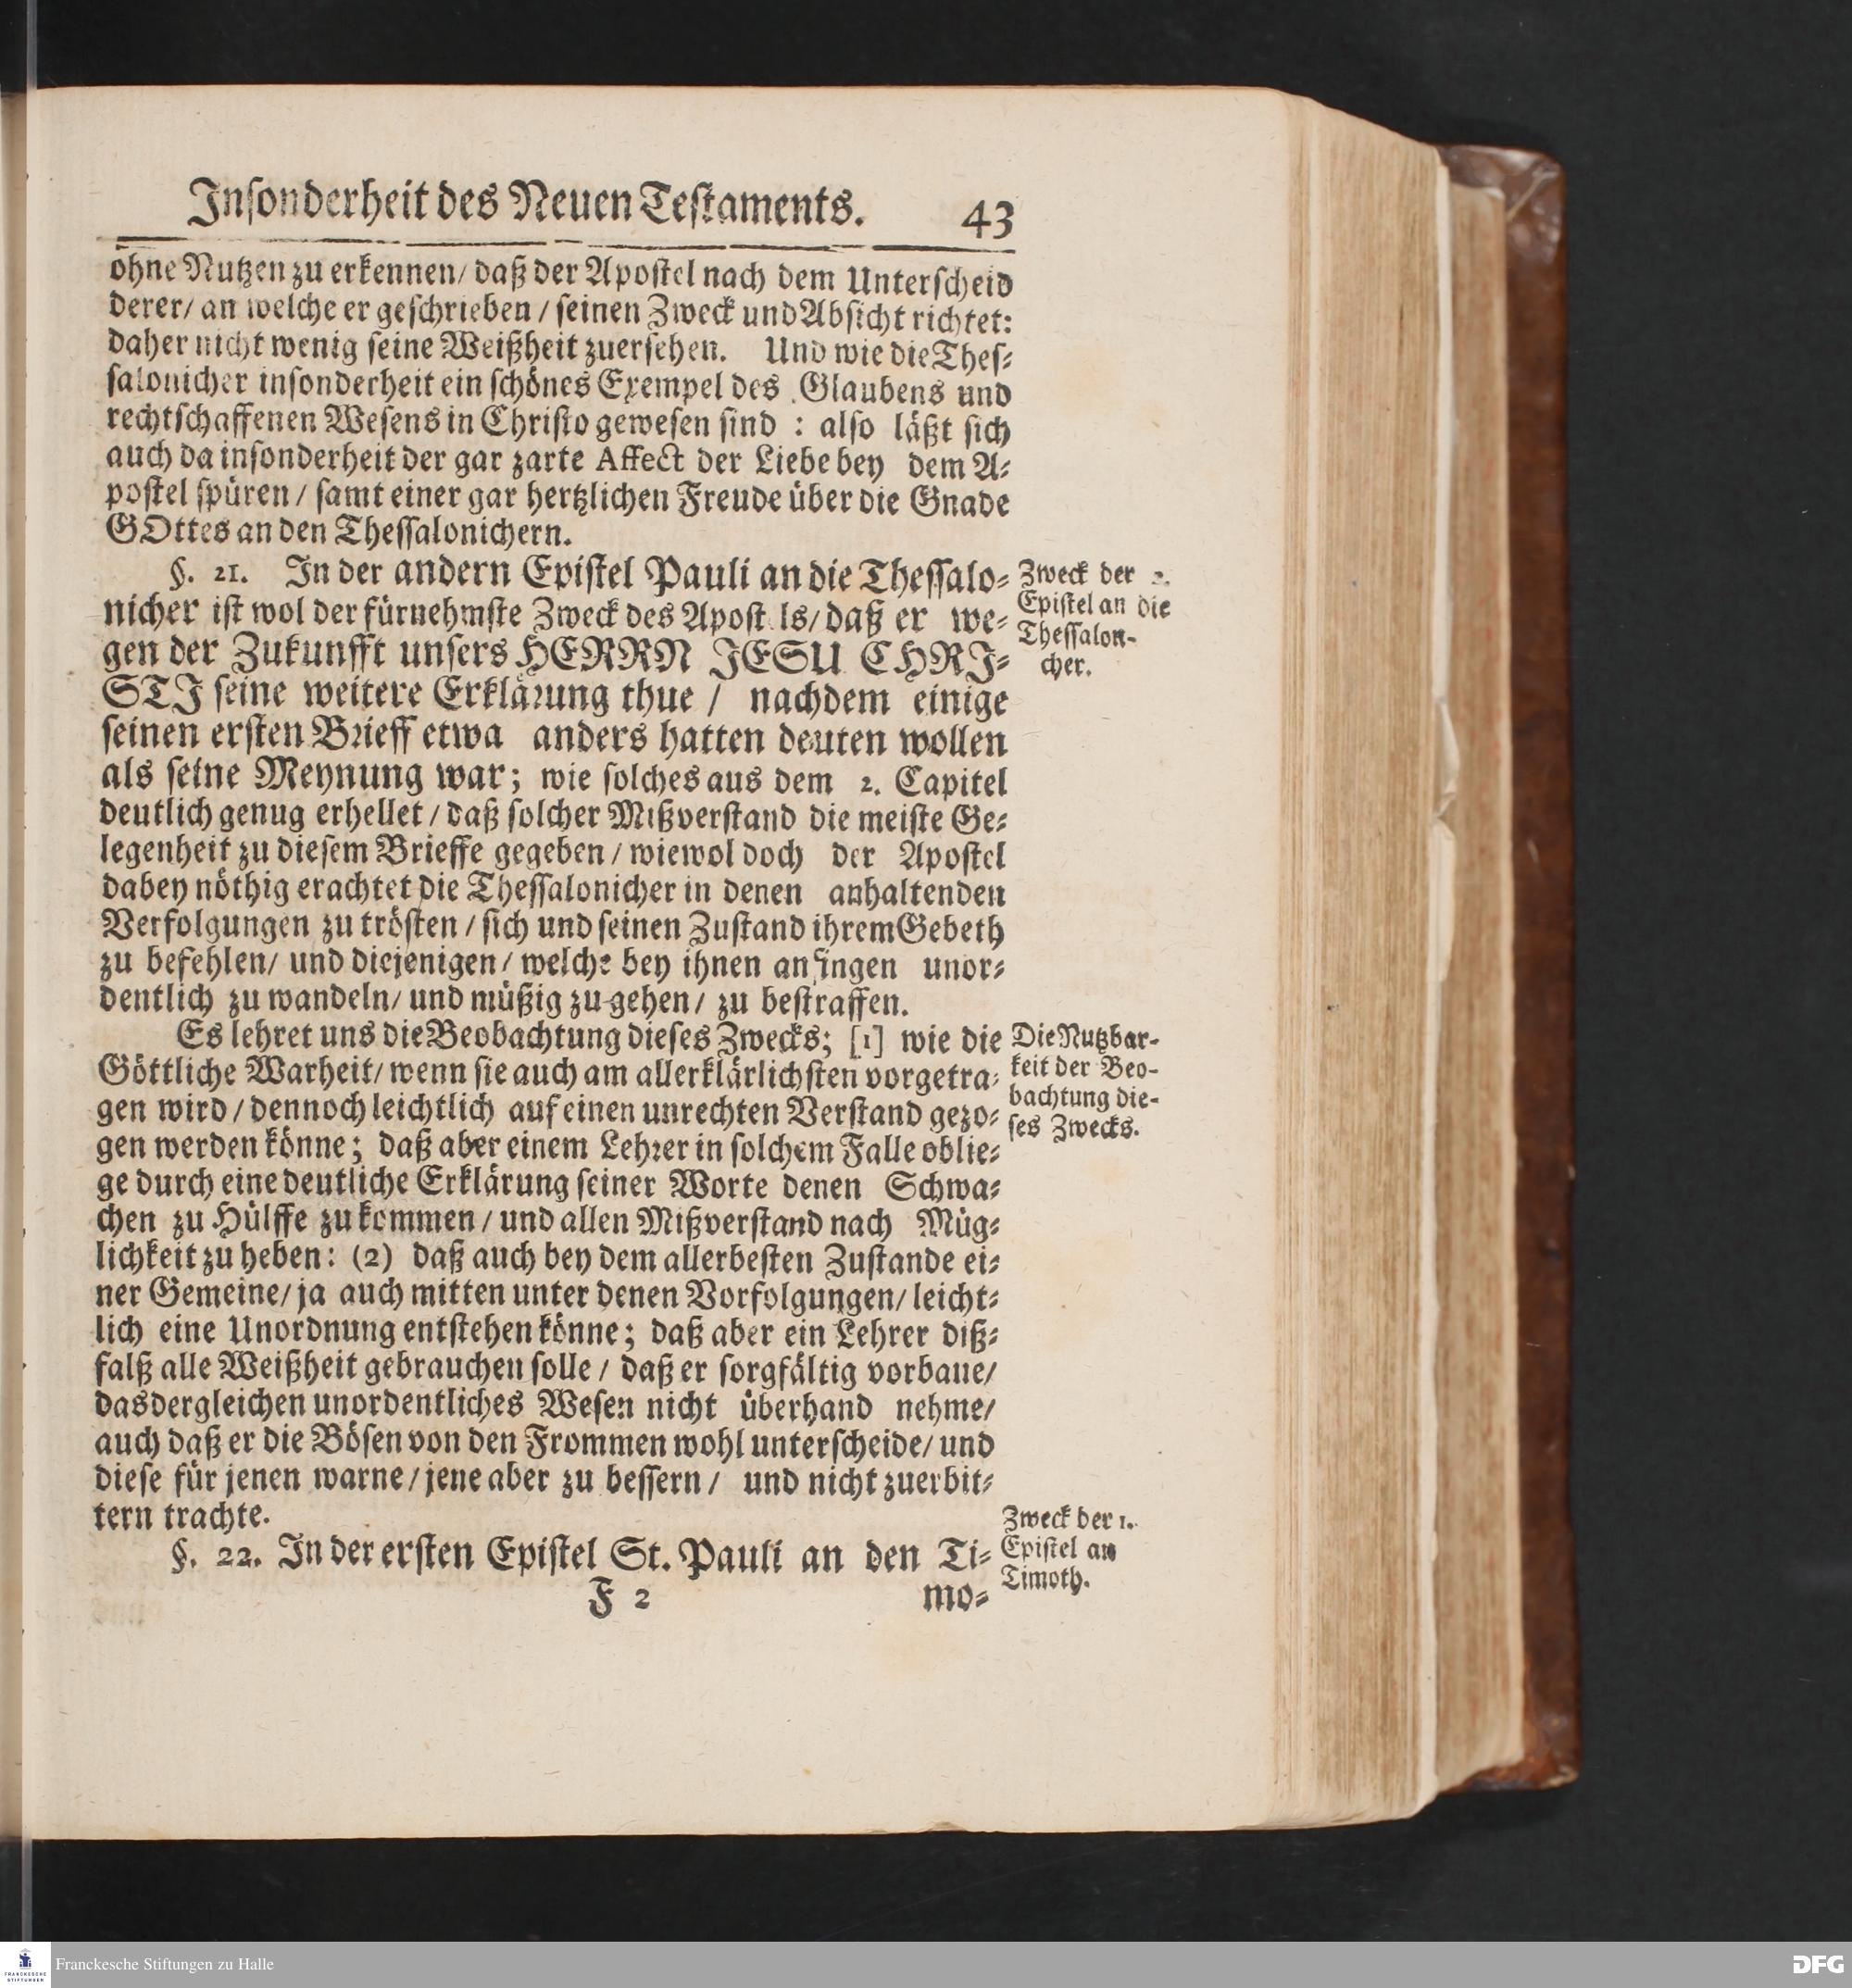 Inſonderheit des Neuen Teſtaments. 43
ohne Nutzen zu erkennen/ daß der Apoſtel nach dem Unterſcheid
derer/ an welche er geſchrieben / ſeinen Zweck und Abſicht richtet:
daher nicht wenig ſeine Weißheit zuerſehen. Und wie die Theſ-
ſalonicher inſonderheit ein ſchönes Exempel des Glaubens und
rechtſchaffenen Weſens in Chriſto geweſen ſind : alſo läßt ſich
auch da inſonderheit der gar zarte Affect der Liebe bey dem A-
poſtel ſpüren / ſamt einer gar hertzlichen Freude über die Gnade
GOttes an den Theſſalonichern.
§. 21. In der andern Epiſtel Pauli an die Theſſalo-
nicher iſt wol der fürnehmſte Zweck des Apoſt ls/ daß er we-
gen der Zukunfft unſers HERRN JESU CHRI-
STI ſeine weitere Erklärung thue / nachdem einige
ſeinen erſten Brieff etwa anders hatten deuten wollen
als ſeine Meynung war; wie ſolches aus dem 2. Capitel
deutlich genug erhellet / daß ſolcher Mißverſtand die meiſte Ge-
legenheit zu dieſem Brieffe gegeben / wiewol doch der Apoſtel
dabey nöthig erachtet die Theſſalonicher in denen anhaltenden
Verfolgungen zu tröſten / ſich und ſeinen Zuſtand ihrem Gebeth
zu befehlen/ und diejenigen / welche bey ihnen anfingen unor-
dentlich zu wandeln/ und müßig zu gehen/ zu beſtraffen.
Zweck der 2.
Epiſtel an die
Theſſalon-
cher.
Es lehret uns die Beobachtung dieſes Zwecks; [1] wie die
Göttliche Warheit/ wenn ſie auch am allerklärlichſten vorgetra-
gen wird / dennoch leichtlich auf einen unrechten Verſtand gezo-
gen werden könne; daß aber einem Lehrer in ſolchem Falle oblie-
ge durch eine deutliche Erklärung ſeiner Worte denen Schwa-
chen zu Hülffe zu kommen / und allen Mißverſtand nach Müg-
lichkeit zu heben: (2) daß auch bey dem allerbeſten Zuſtande ei-
ner Gemeine/ ja auch mitten unter denen Vorfolgungen/ leicht-
lich eine Unordnung entſtehen könne; daß aber ein Lehrer diß-
falß alle Weißheit gebrauchen ſolle / daß er ſorgfältig vorbaue/
das dergleichen unordentliches Weſen nicht überhand nehme/
auch daß er die Böſen von den Frommen wohl unterſcheide/ und
dieſe für jenen warne / jene aber zu beſſern / und nicht zuerbit-
tern trachte.
Die Nutzbar-
keit der Beo-
bachtung die-
ſes Zwecks.
§. 22. In der erſten Epiſtel St. Pauli an den Ti-
Zweck der 1.
Epiſtel an
Timoth.
F 2 mo-
FRANCKESCHE
STIFTUNGEN
Franckesche Stiftungen zu Halle
DFG